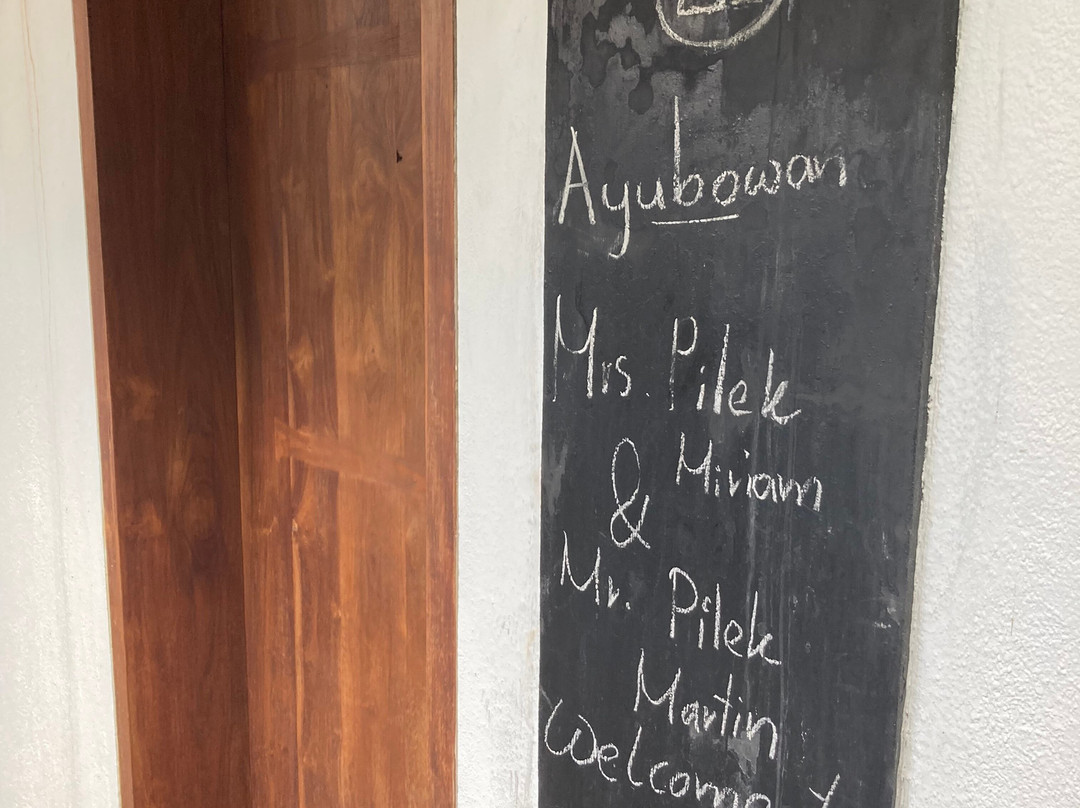 Ayubowan
Mrs. Pilek
Miriam
&
Mr. Pilek
Martin
Welcome